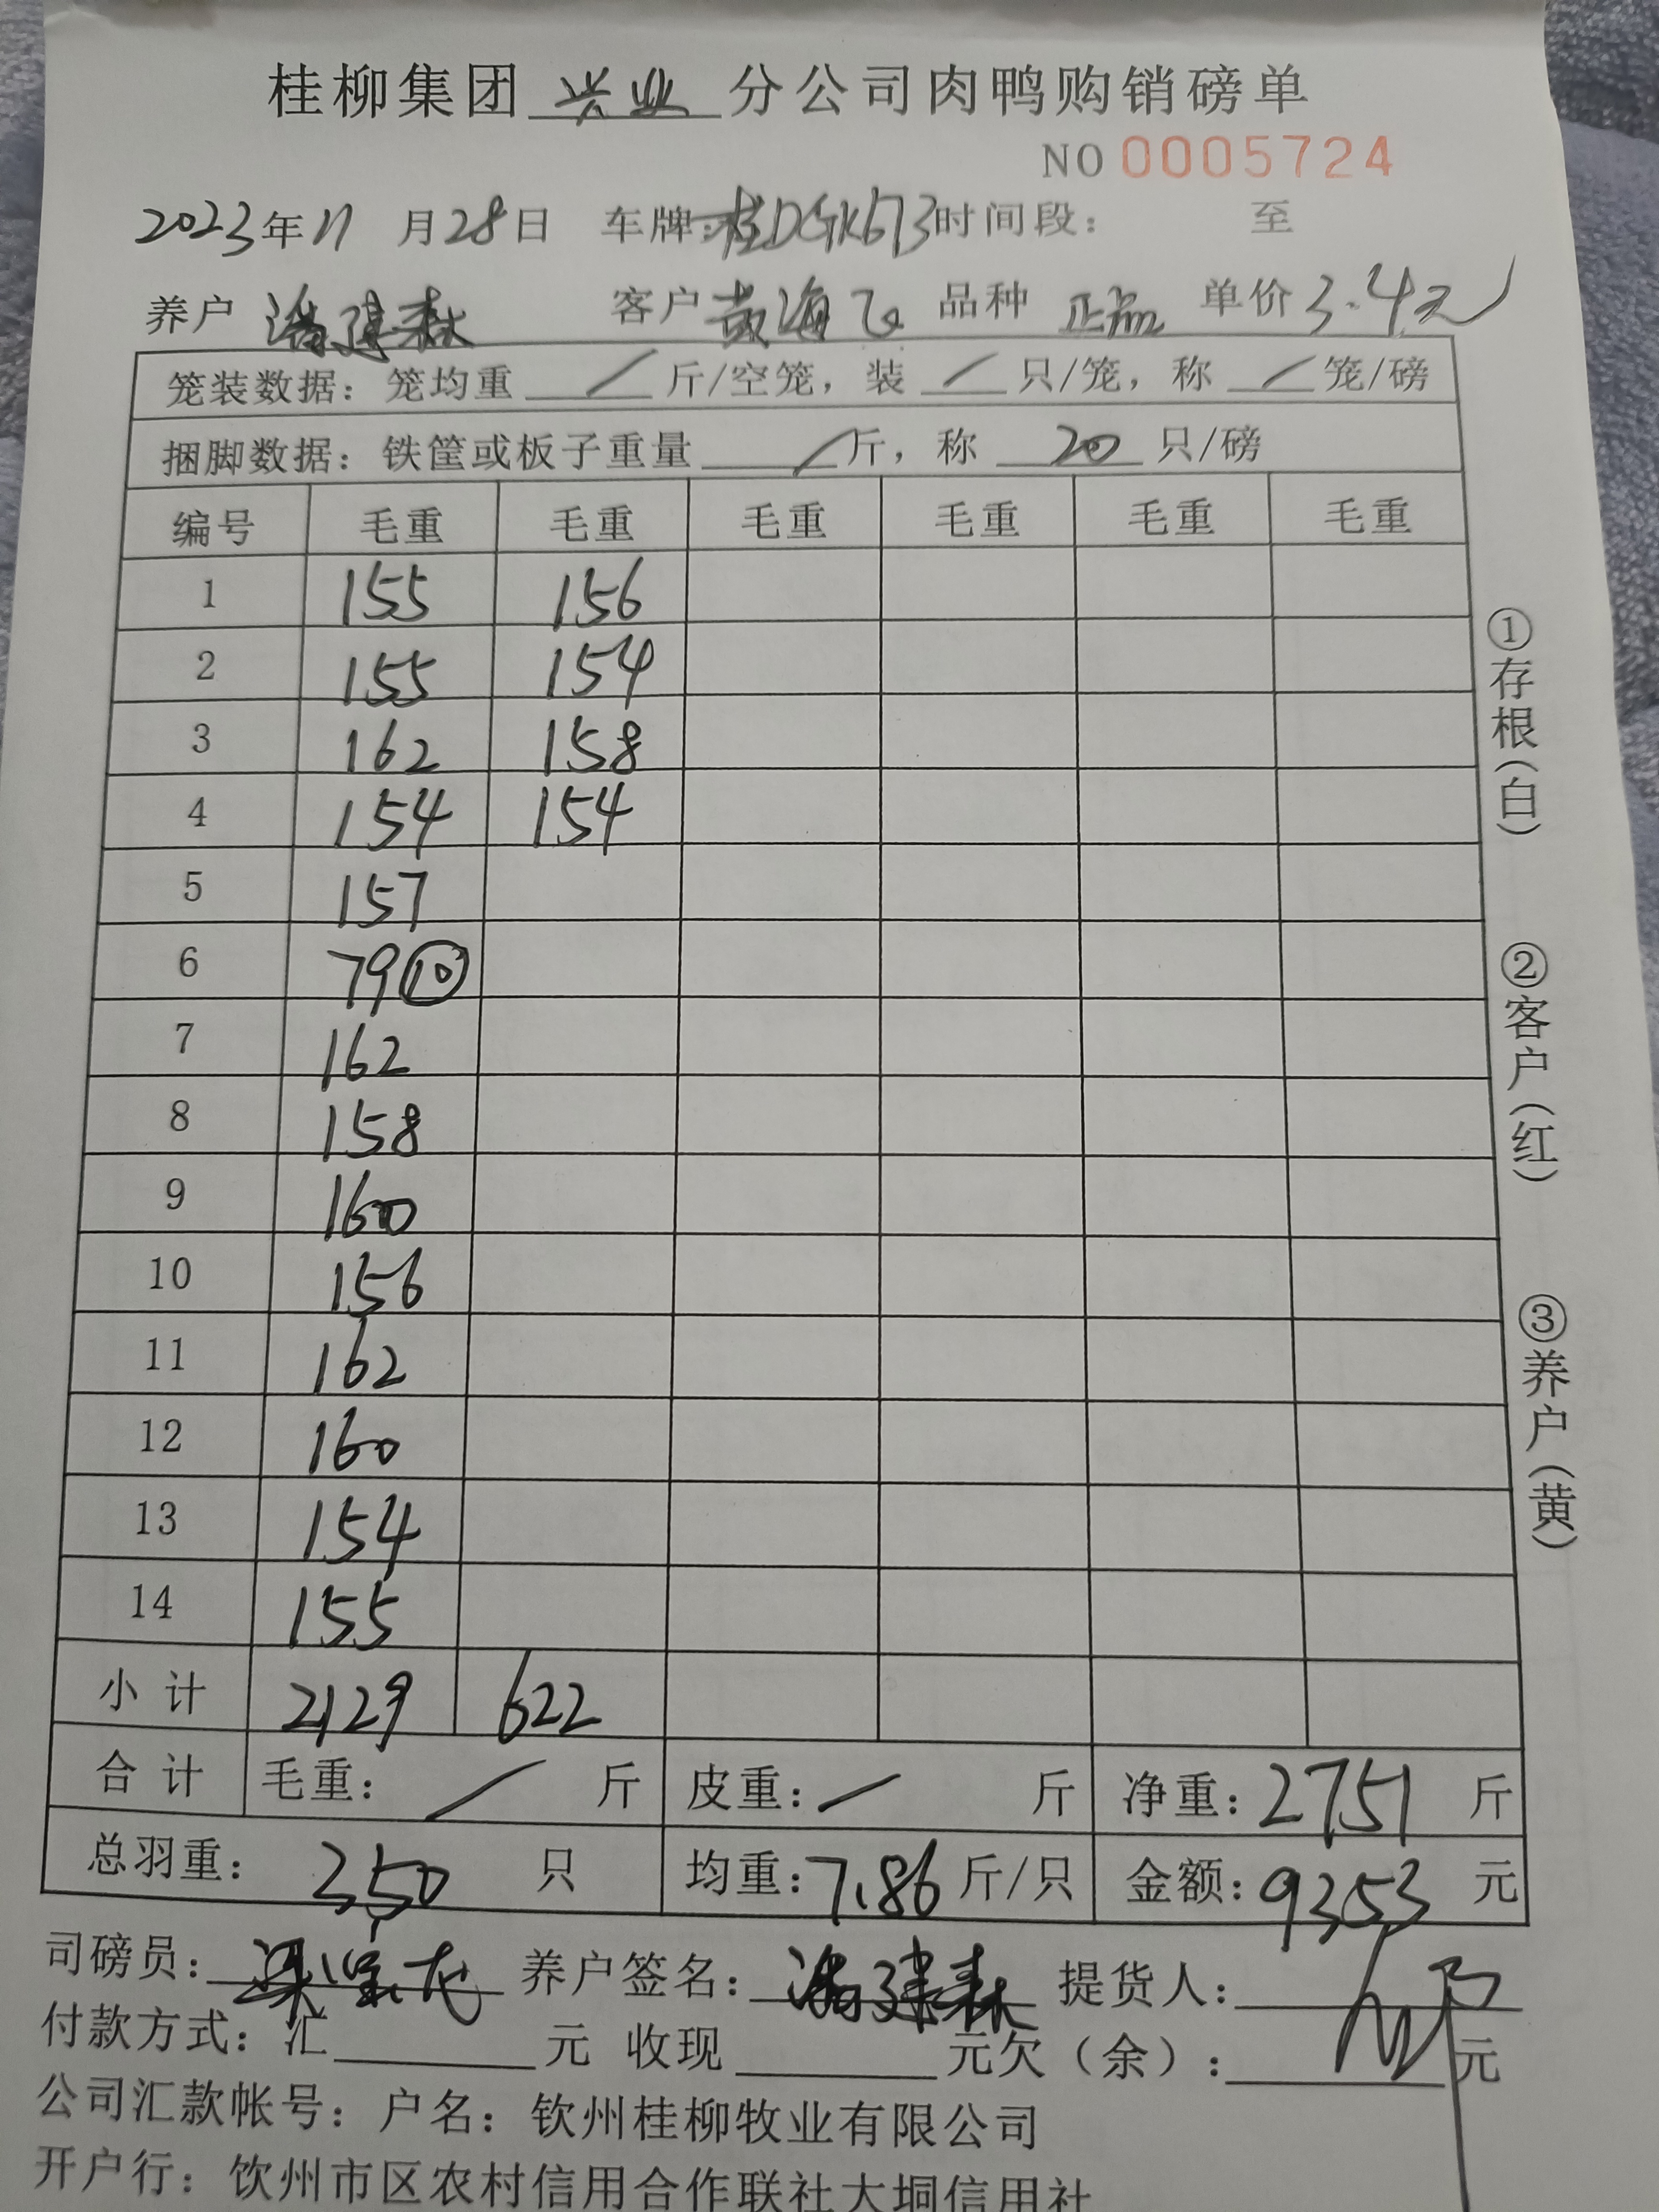 桂柳集团 兴业 分公司肉鸭购销磅单
NO 0005724
2023年11月28日 车牌:桂DGK673 时间段: 至
养户 潘建森 客户 黄海飞 品种 正品 单价 3.4元
笼装数据: 笼均重 / 斤/空笼, 装 / 只/笼, 称 / 笼/磅
捆脚数据: 铁筐或板子重量 / 斤, 称 20 只/磅
编号 毛重 毛重 毛重 毛重 毛重 毛重
1 155 156
2 155 154
3 162 158
4 154 154
5 157
6 79 ⑩
7 162
8 158
9 160
10 156
11 162
12 160
13 154
14 155
小计 2129 622
合计 毛重: / 斤 皮重: / 斤 净重: 2751 斤
总羽重: 350 只 均重: 7.86 斤/只 金额: 9353 元
司磅员: 养户签名: 潘建森 提货人:
付款方式: 汇 元 收现 元欠(余): 元
公司汇款帐号: 户名: 钦州桂柳牧业有限公司
开户行: 钦州市区农村信用合作联社大垌信用社
①存根(白)
②客户(红)
③养户(黄)